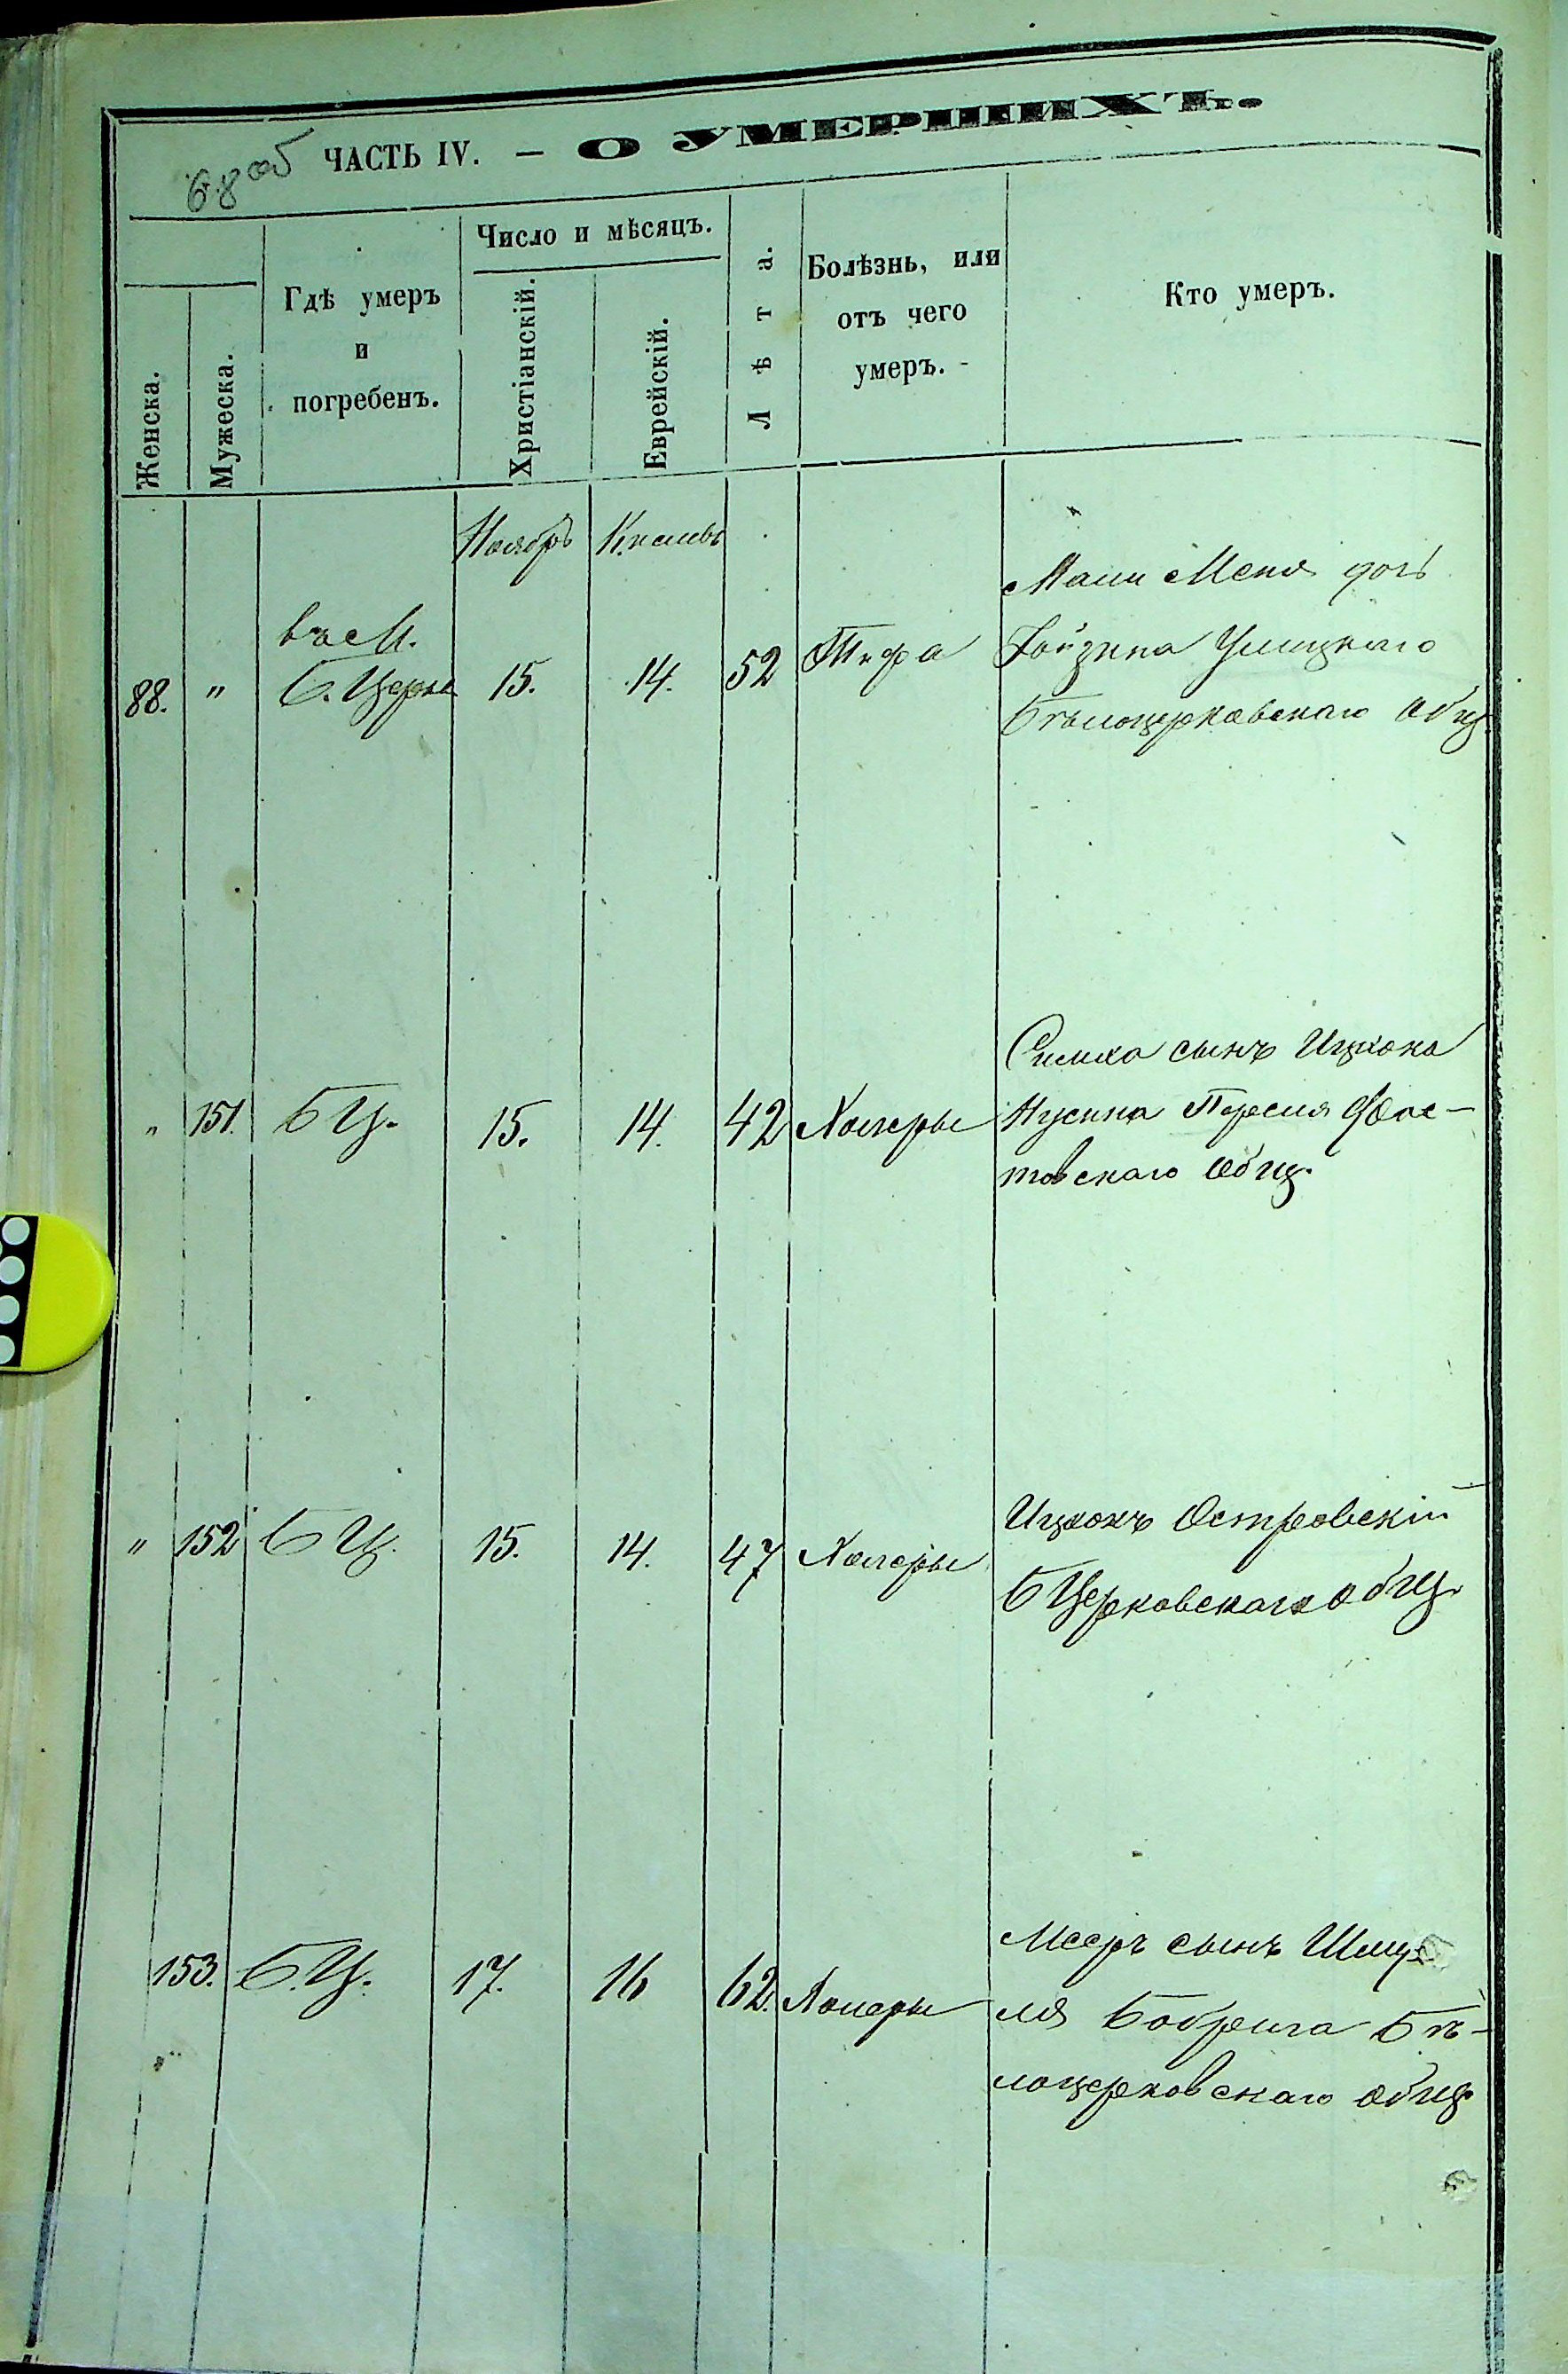 68об ЧАСТЬ IV. — О УМЕРШИХЪ.
Женска.
Мужеска.
Гдѣ умеръ
и
погребенъ.
Число и мѣсяцъ.
Христіанскій.
Еврейскій.
Лѣта.
Болѣзнь, или
отъ чего
умеръ.
Кто умеръ.
Ноябрь
88. "
въ М.
Б. Церкв
15. 14. 52 Тифа
Мася дочь
Улицкаго
Бѣлоцерковскаго Общ.
" 151. БЦ. 15. 14. 42 Холеры
Симха сынъ Ицхока
Нусина Фас-
товскаго Общ.
" 152 БЦ. 15. 14. 47 Холеры
Ицхокъ Островскій
БЦерковскаго общ.
153. Б.Ц. 17. 16 62. Холеры
Мееръ сынъ Шму-
ля Бѣ-
лоцерковскаго общ.